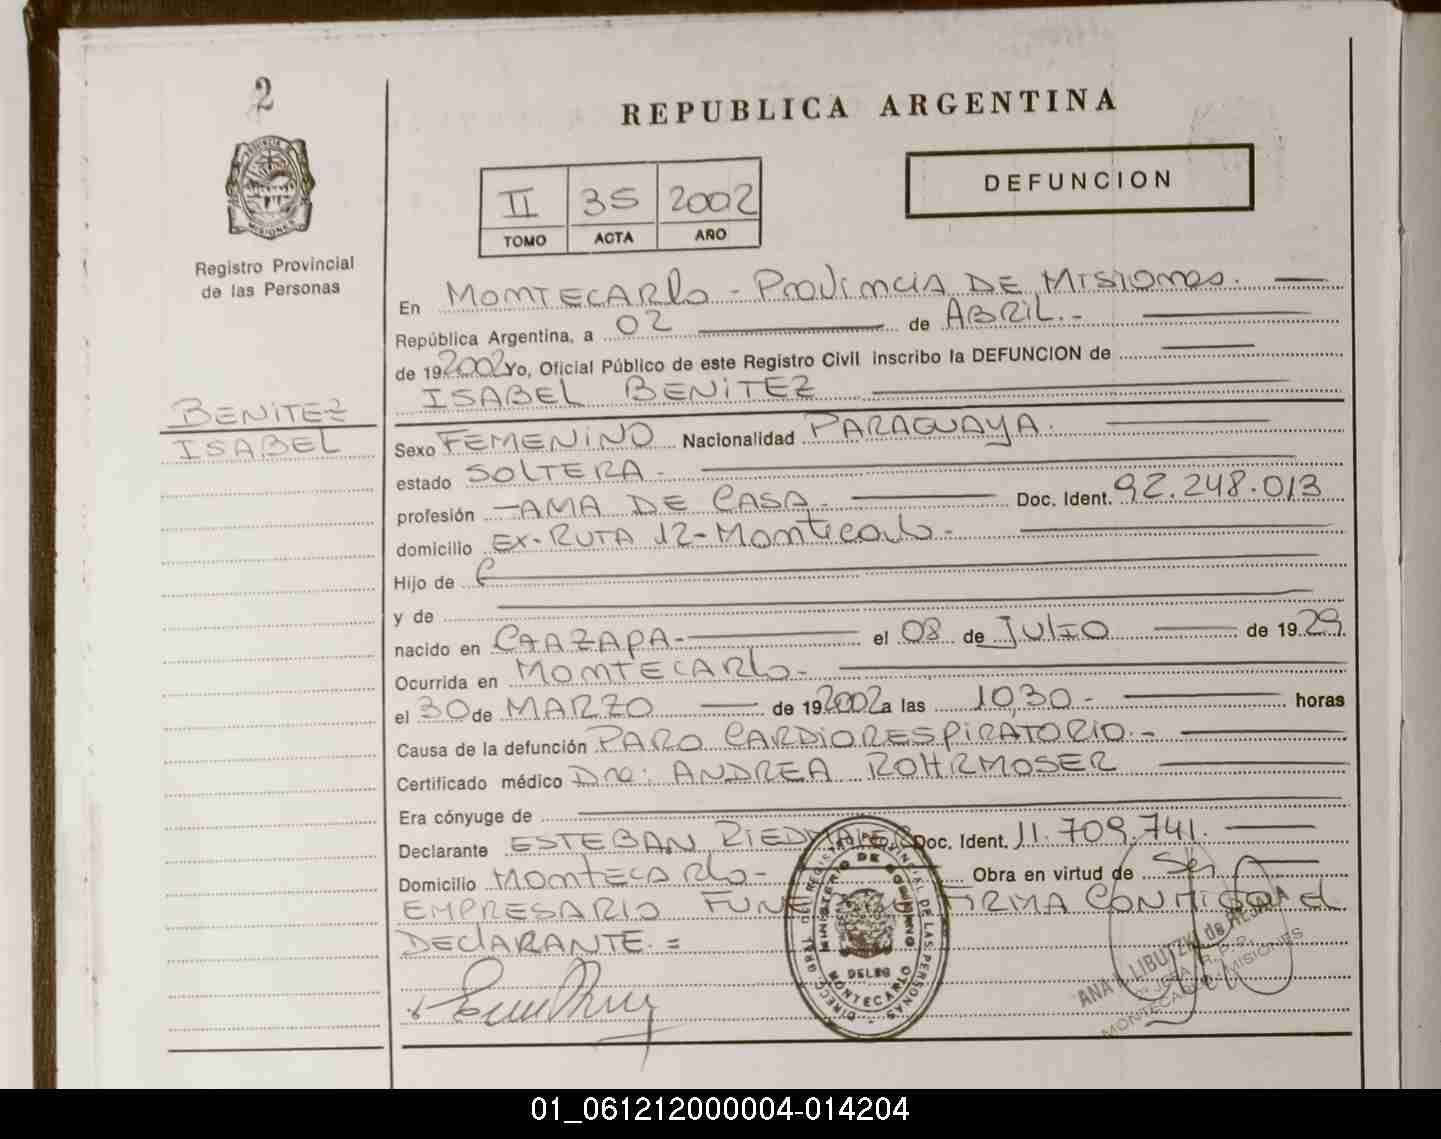 2
REPUBLICA ARGENTINA
DEFUNCION
II 35 2002
TOMO ACTA AÑO
PROVINCIA DE MISIONES
Registro Provincial
de las Personas
BENITEZ
ISABEL
En MONTECARLO - PROVINCIA DE MISIONES.
República Argentina, a 02 de ABRIL.-
de 192002 Yo, Oficial Público de este Registro Civil inscribo la DEFUNCION de
ISABEL BENITEZ
Sexo FEMENINO Nacionalidad PARAGUAYA.
estado SOLTERA.
profesión -AMA DE CASA.- Doc. Ident. 92.248.013
domicilio EX-RUTA 12-Montecarlo-
Hijo de
y de
nacido en CAAZAPA- el 08 de JULIO de 1929
Ocurrida en MONTECARLO-
el 30 de MARZO de 192002 a las 10,30- horas
Causa de la defunción PARO CARDIORESPIRATORIO.-
Certificado médico Dra: ANDREA ROHRMOSER
Era cónyuge de
Declarante ESTEBAN RIEDMAIER Doc. Ident. 11.709.741.
Domicilio MONTECARLO- Obra en virtud de Ser
EMPRESARIO FUN FIRMA CONMIGO el
DECLARANTE.=
DIRECC. GRAL. DEL REGISTRO PROVINCIAL DE LAS PERSONAS
MINISTERIO DE GOBIERNO
DELEG
MONTECARLO
ANA LIBUTZKI de
MONTECARLO - MISIONES
01_061212000004-014204